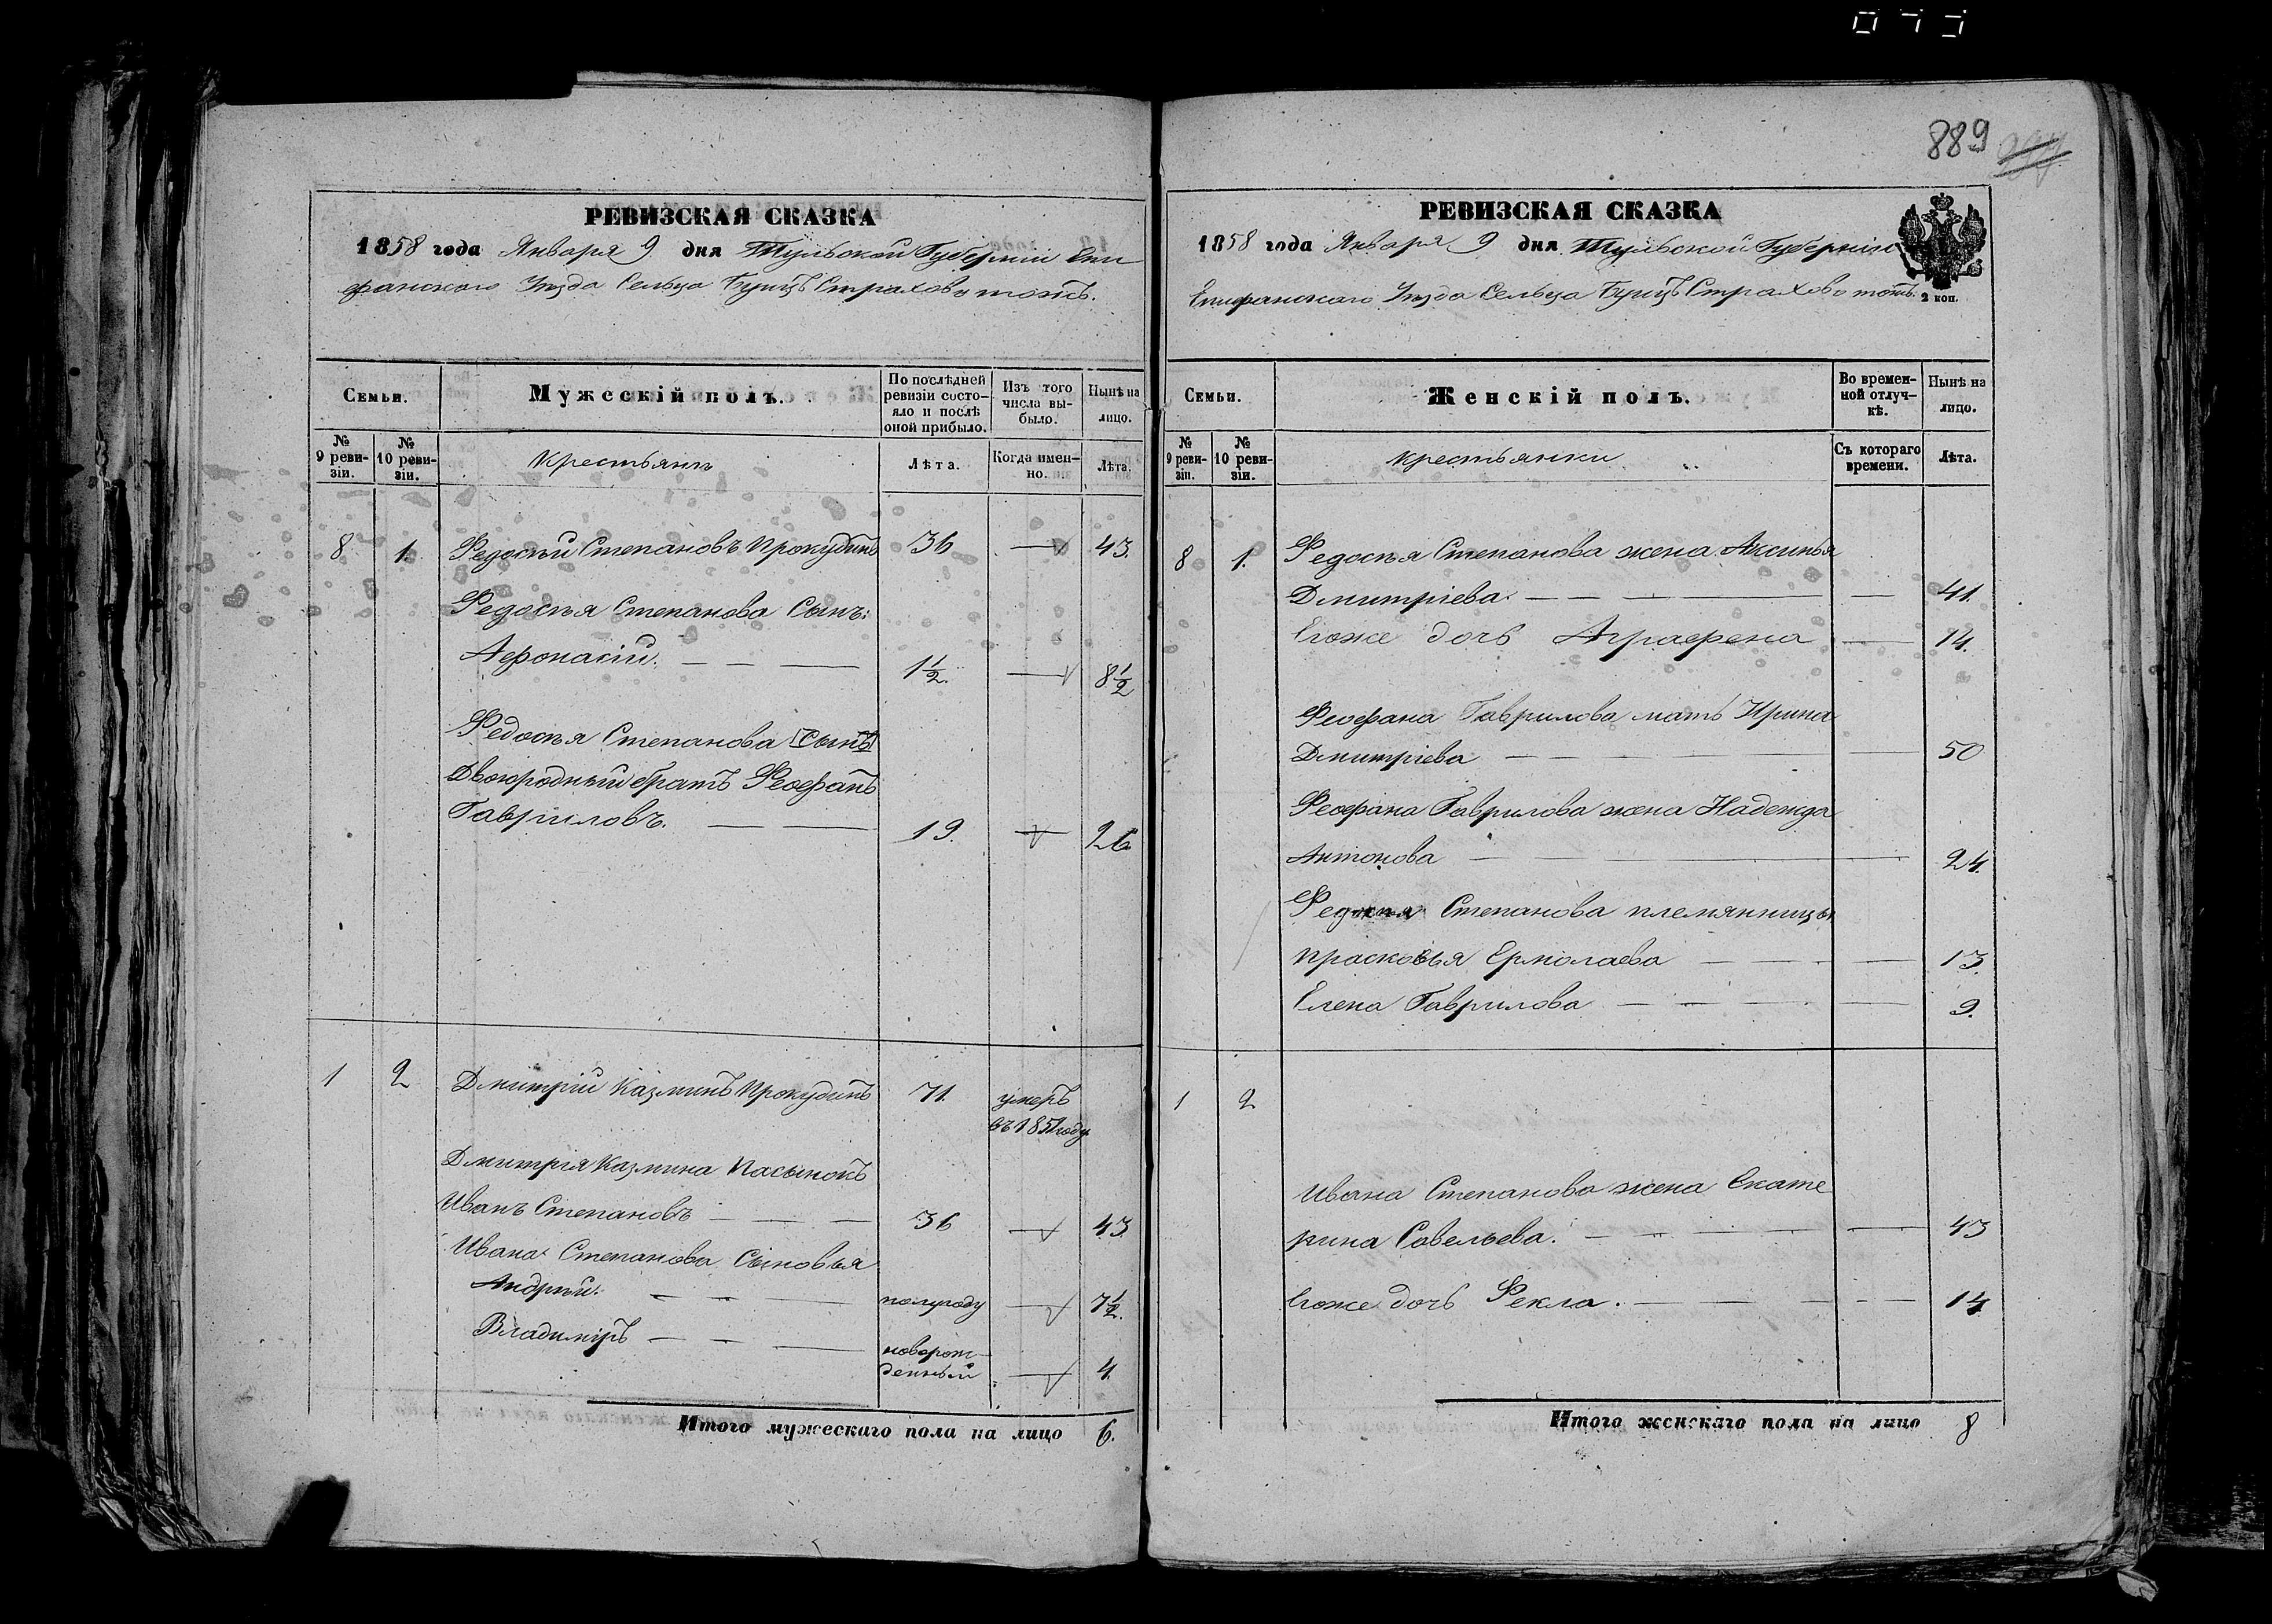 889
РЕВИЗСКАЯ СКАЗКА
1858 года Января 9 дня Тульской Губерніи Епи
фанскаго Уѣзда Сельца Бучцъ Страхово тожъ.
Семьи.
Мужескій полъ.
По послѣдней ревизіи состояло и послѣ оной прибыло.
Изъ того числа выбыло.
Нынѣ на лицо.
№ 9 ревизіи.
№ 10 ревизіи.
Крестьянъ
Лѣта.
Когда именно.
Лѣта.
8 1. Ѳедосѣй Степановъ Прокудинъ 36 — 43.
Ѳедосѣя Степанова Сынъ:
Афонасій. — — — 1½. — 8½
Ѳедосѣя Степанова [Сынъ]
Двоюродный братъ Ѳеофанъ
Гавриловъ. — — 19. — 26
1 2 Дмитрій Казминъ Прокудинъ 71. умеръ
въ 1851 году
Дмитрія Казмина Пасынокъ
Иванъ Степановъ — — — 36 — 43.
Ивана Степанова Сыновья
Андрей. — — — полугоду — 7½.
Владиміръ — — — новорож
денный — 4.
Итого мужескаго пола на лицо 6.
РЕВИЗСКАЯ СКАЗКА
1858 года Января 9 дня Тульской Губерніи
Епифанскаго Уѣзда Сельца Бучцъ Страхово тожъ.
2 коп.
Семьи.
Женскій полъ.
Во временной отлучкѣ.
Нынѣ на лицо.
№ 9 ревизіи.
№ 10 ревизіи.
Крестьянки
Съ котораго времени.
Лѣта.
8 1. Ѳедосѣя Степанова жена Аксинья
Дмитріева — — — — — 41.
Егоже дочь Аграфена — 14.
Ѳеофана Гаврилова мать Ирина
Дмитріева — — — — — 50
Ѳеофана Гаврилова жена Надежда
Антонова — — — — 24.
Ѳедосѣя Степанова племянницы
Прасковья Ермолаева — — — — 13.
Елена Гаврилова — — — — 9.
1 2
Ивана Степанова жена Екате
рина Савельева. — — — — — 43
Егоже дочь Ѳекла. — — — — 14
Итого женскаго пола на лицо 8